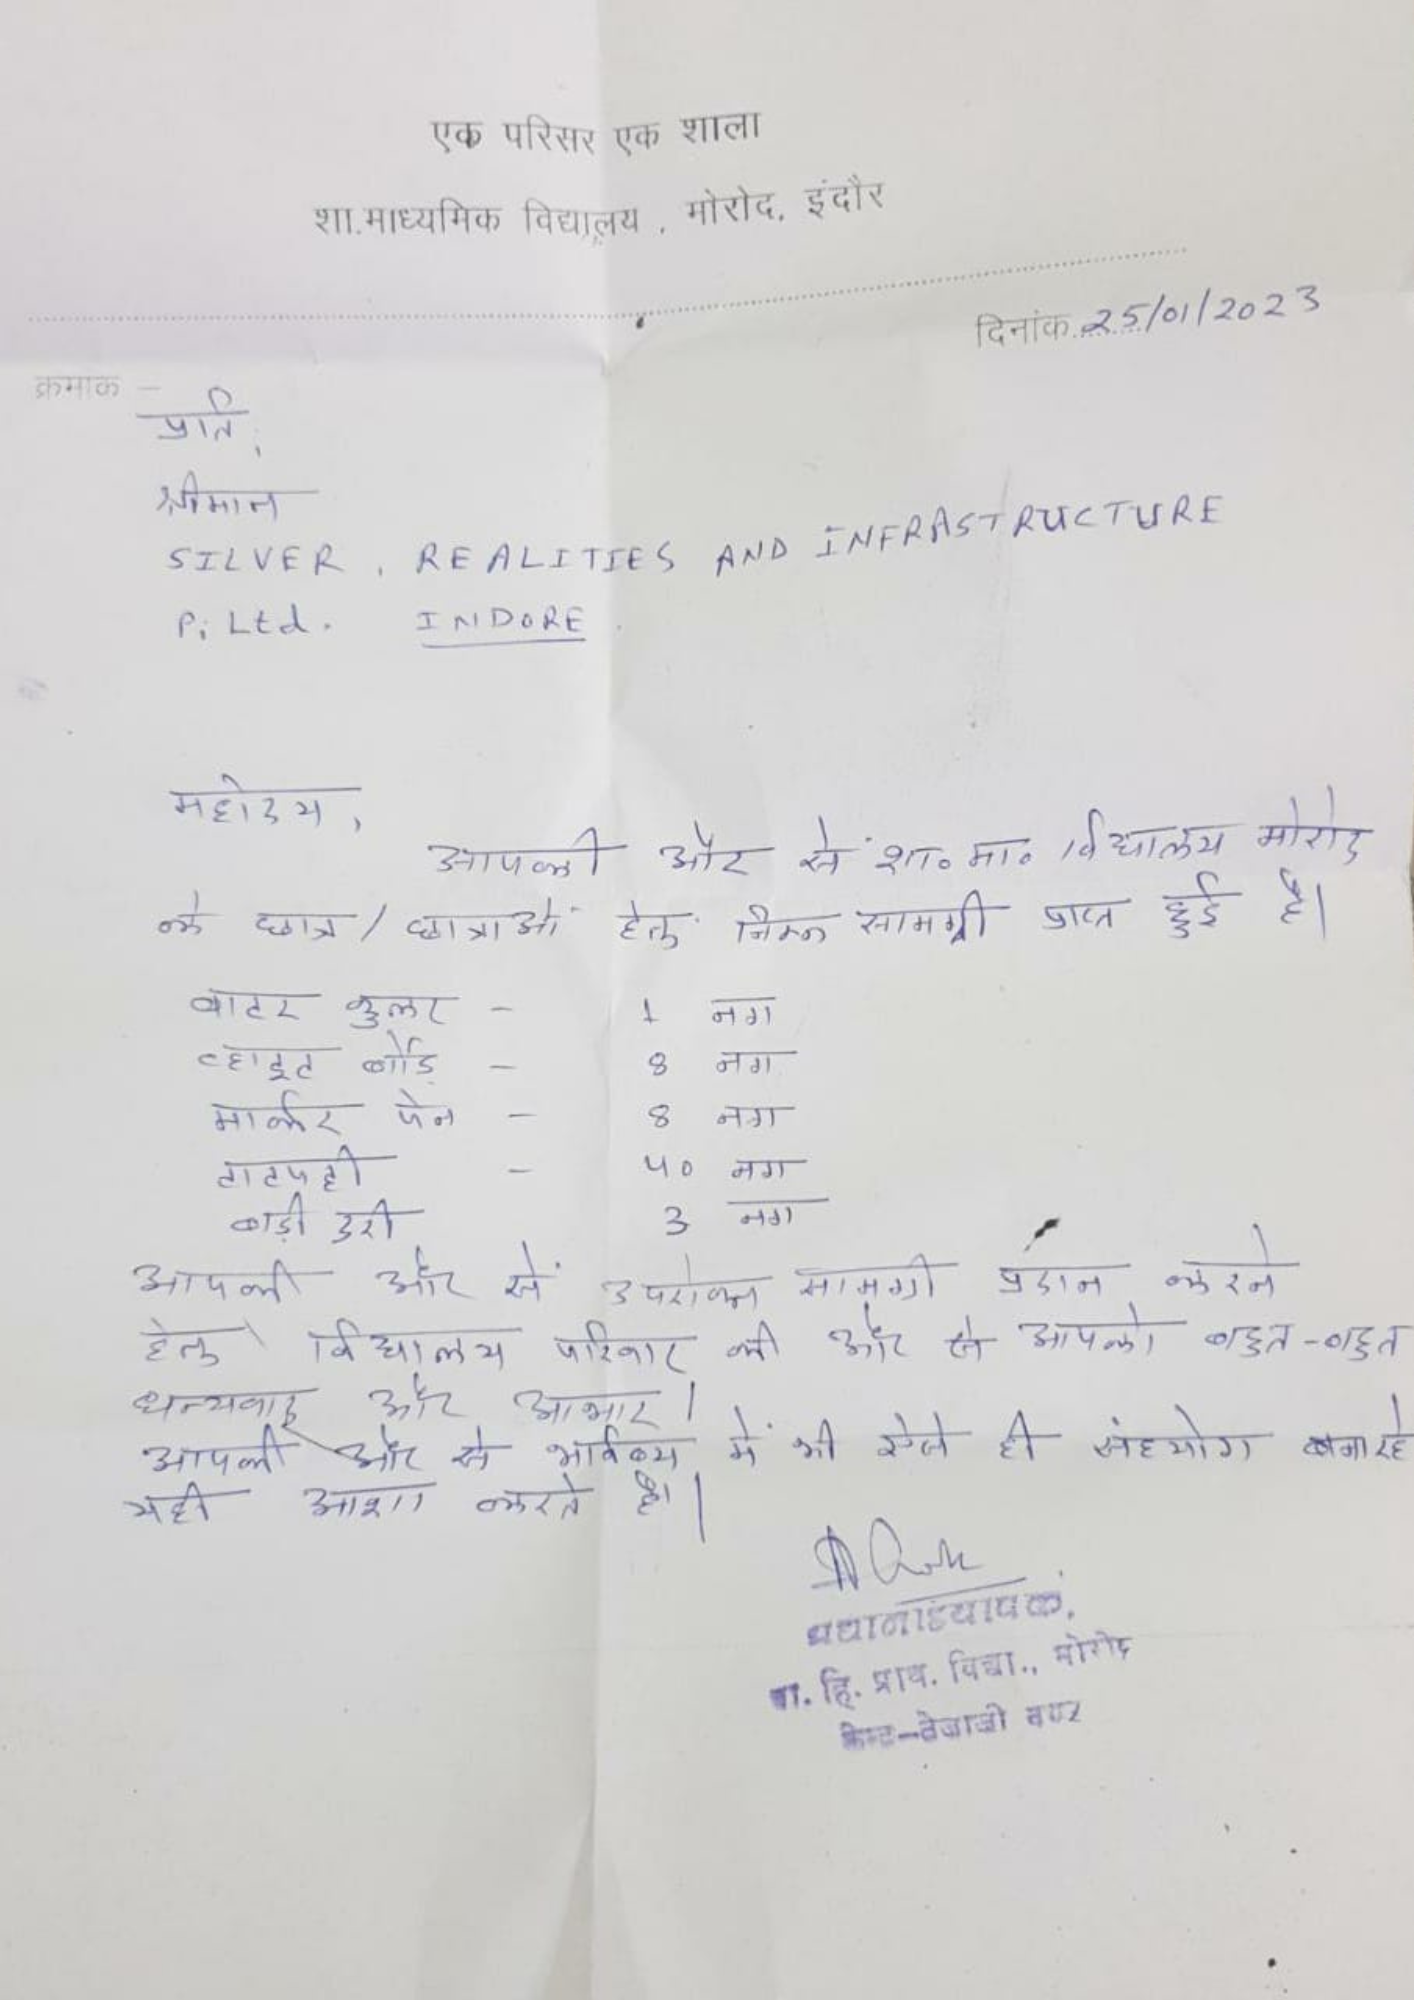 एक परिसर एक शाला
शा.माध्यमिक विद्यालय , मोरोद, इंदौर
दिनांक 25/01/2023
क्रमाक –
प्रति,
श्रीमान
SILVER , REALITIES AND INFRASTRUCTURE
P. Ltd. INDORE
महोदय,
आपकी और से शा० मा० विद्यालय मोरोद
के छात्र / छात्राओं हेतु निम्न सामग्री प्राप्त हुई है।
वाटर कुलर – 1 नग
व्हाइट बोर्ड – 8 नग
मार्कर पेन – 8 नग
टाटपट्टी – 40 नग
बड़ी दरी 3 नग
आपकी और से उपरोक्त सामग्री प्रदान करने
हेतु विद्यालय परिवार की और से आपको बहुत-बहुत
धन्यवाद और आभार।
आपकी और से भविष्य में भी ऐसे ही संहयोग बना रहे
यही आशा करते है।
प्रधानाध्यापक,
शा. हि. प्राथ. विद्या., मोरोद
तेजाजी नगर